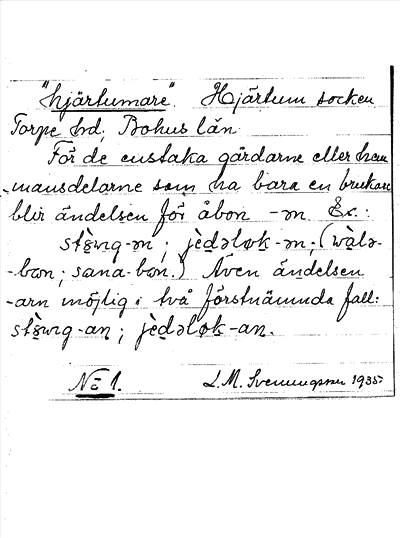 "hjärtumare". Hjärtum socken
Torpe hd, Bohus län
För de enstaka gårdarne eller hem
-mansdelarne som ha bara en brukare
blir ändelsen för åbon -ən. Ex.:
-ən; jèdəløk-ən; (wàlə-
-bon; sana-bon.) Även ändelsen
-arn möjlig i två förstnämnda fall:
-an; jèdəløk-an.
No 1. L.M. Svenungsson 1935